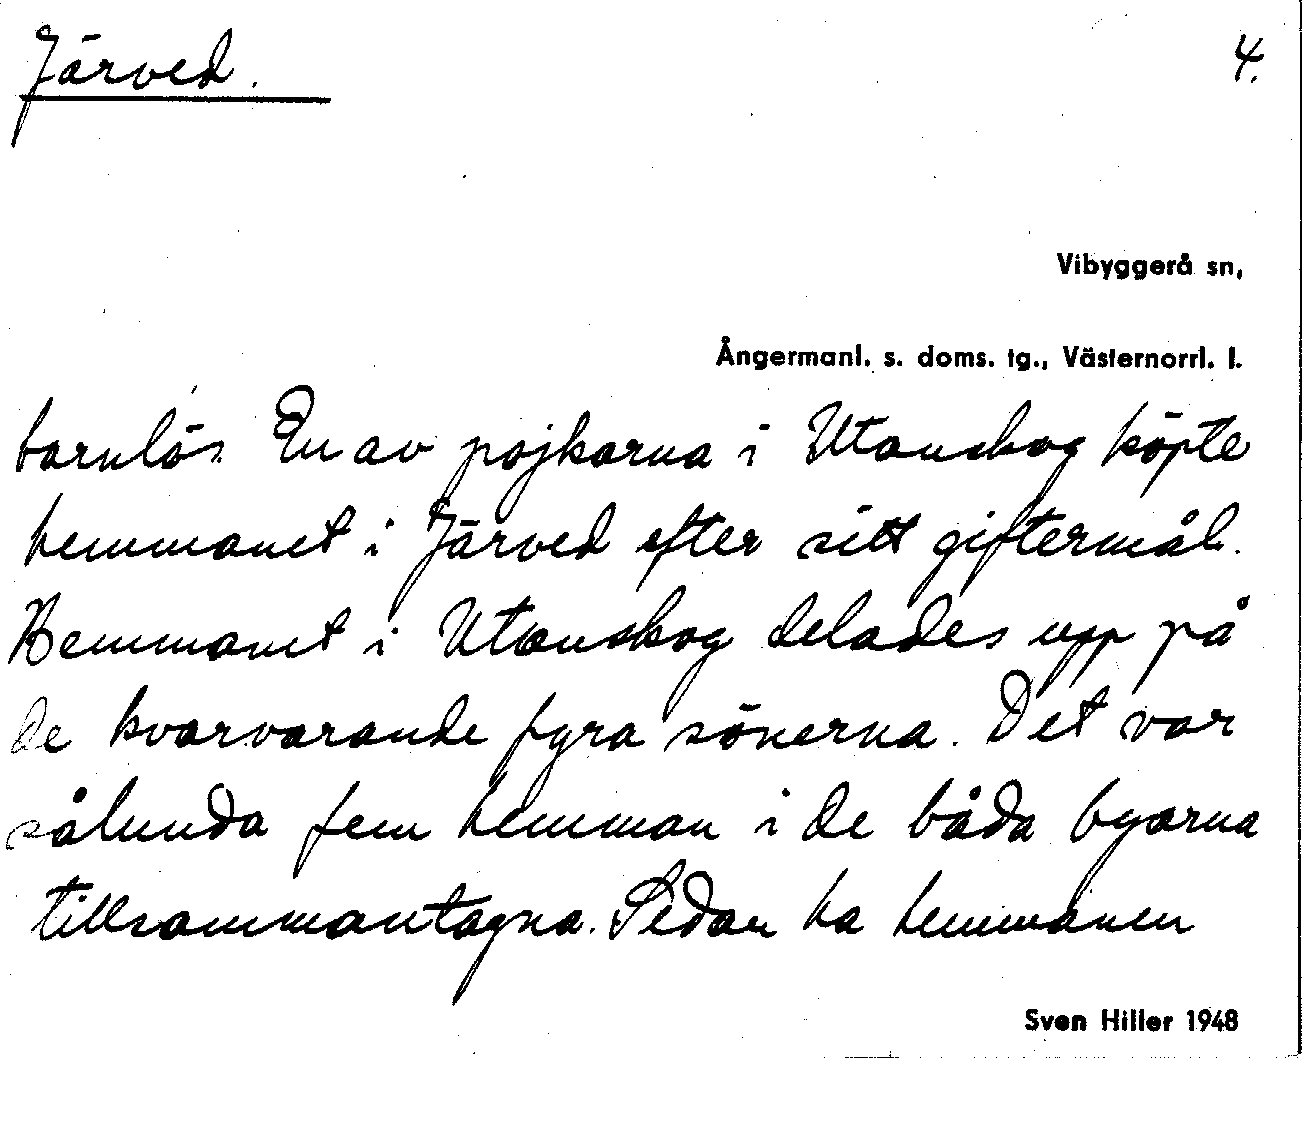 Järved. 4.
Vibyggerå sn,
Ångermanl. s. doms. tg., Västernorrl. l.
barnlös. En av pojkarna i Utanskog köpte
hemmanet i Järved efter sitt giftermål.
Hemmanet i Utanskog delades upp på
de kvarvarande fyra sönerna. Det var
sålunda fem hemman i de båda byarna
tillsammantagna. Sedan ha hemmanen
Sven Hiller 1948